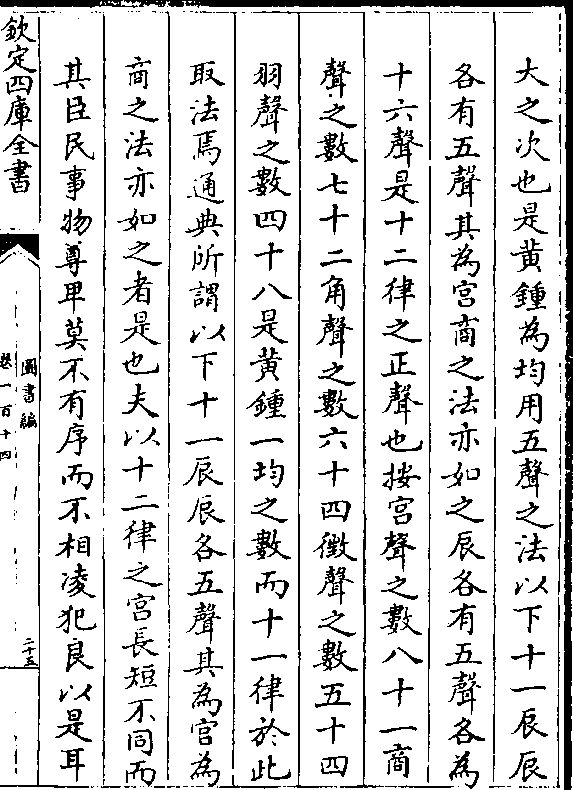 大之次也是黄鍾為均用五聲之法以下十一辰辰
各有五聲其為宫商之法亦如之辰各有五聲各為
十六聲是十二律之正聲也按宫聲之數八十一商
聲之數七十二角聲之數六十四徵聲之數五十四
羽聲之數四十八是黄鍾一均之數而十一律於此
取法焉通典所謂以下十一辰辰各五聲其為宫為
商之法亦如之者是也夫以十二律之宫長短不同而
其臣民事物尊卑莫不有序而不相凌犯良以是耳
欽定四庫全書
圖書編
卷一百十四
二十五